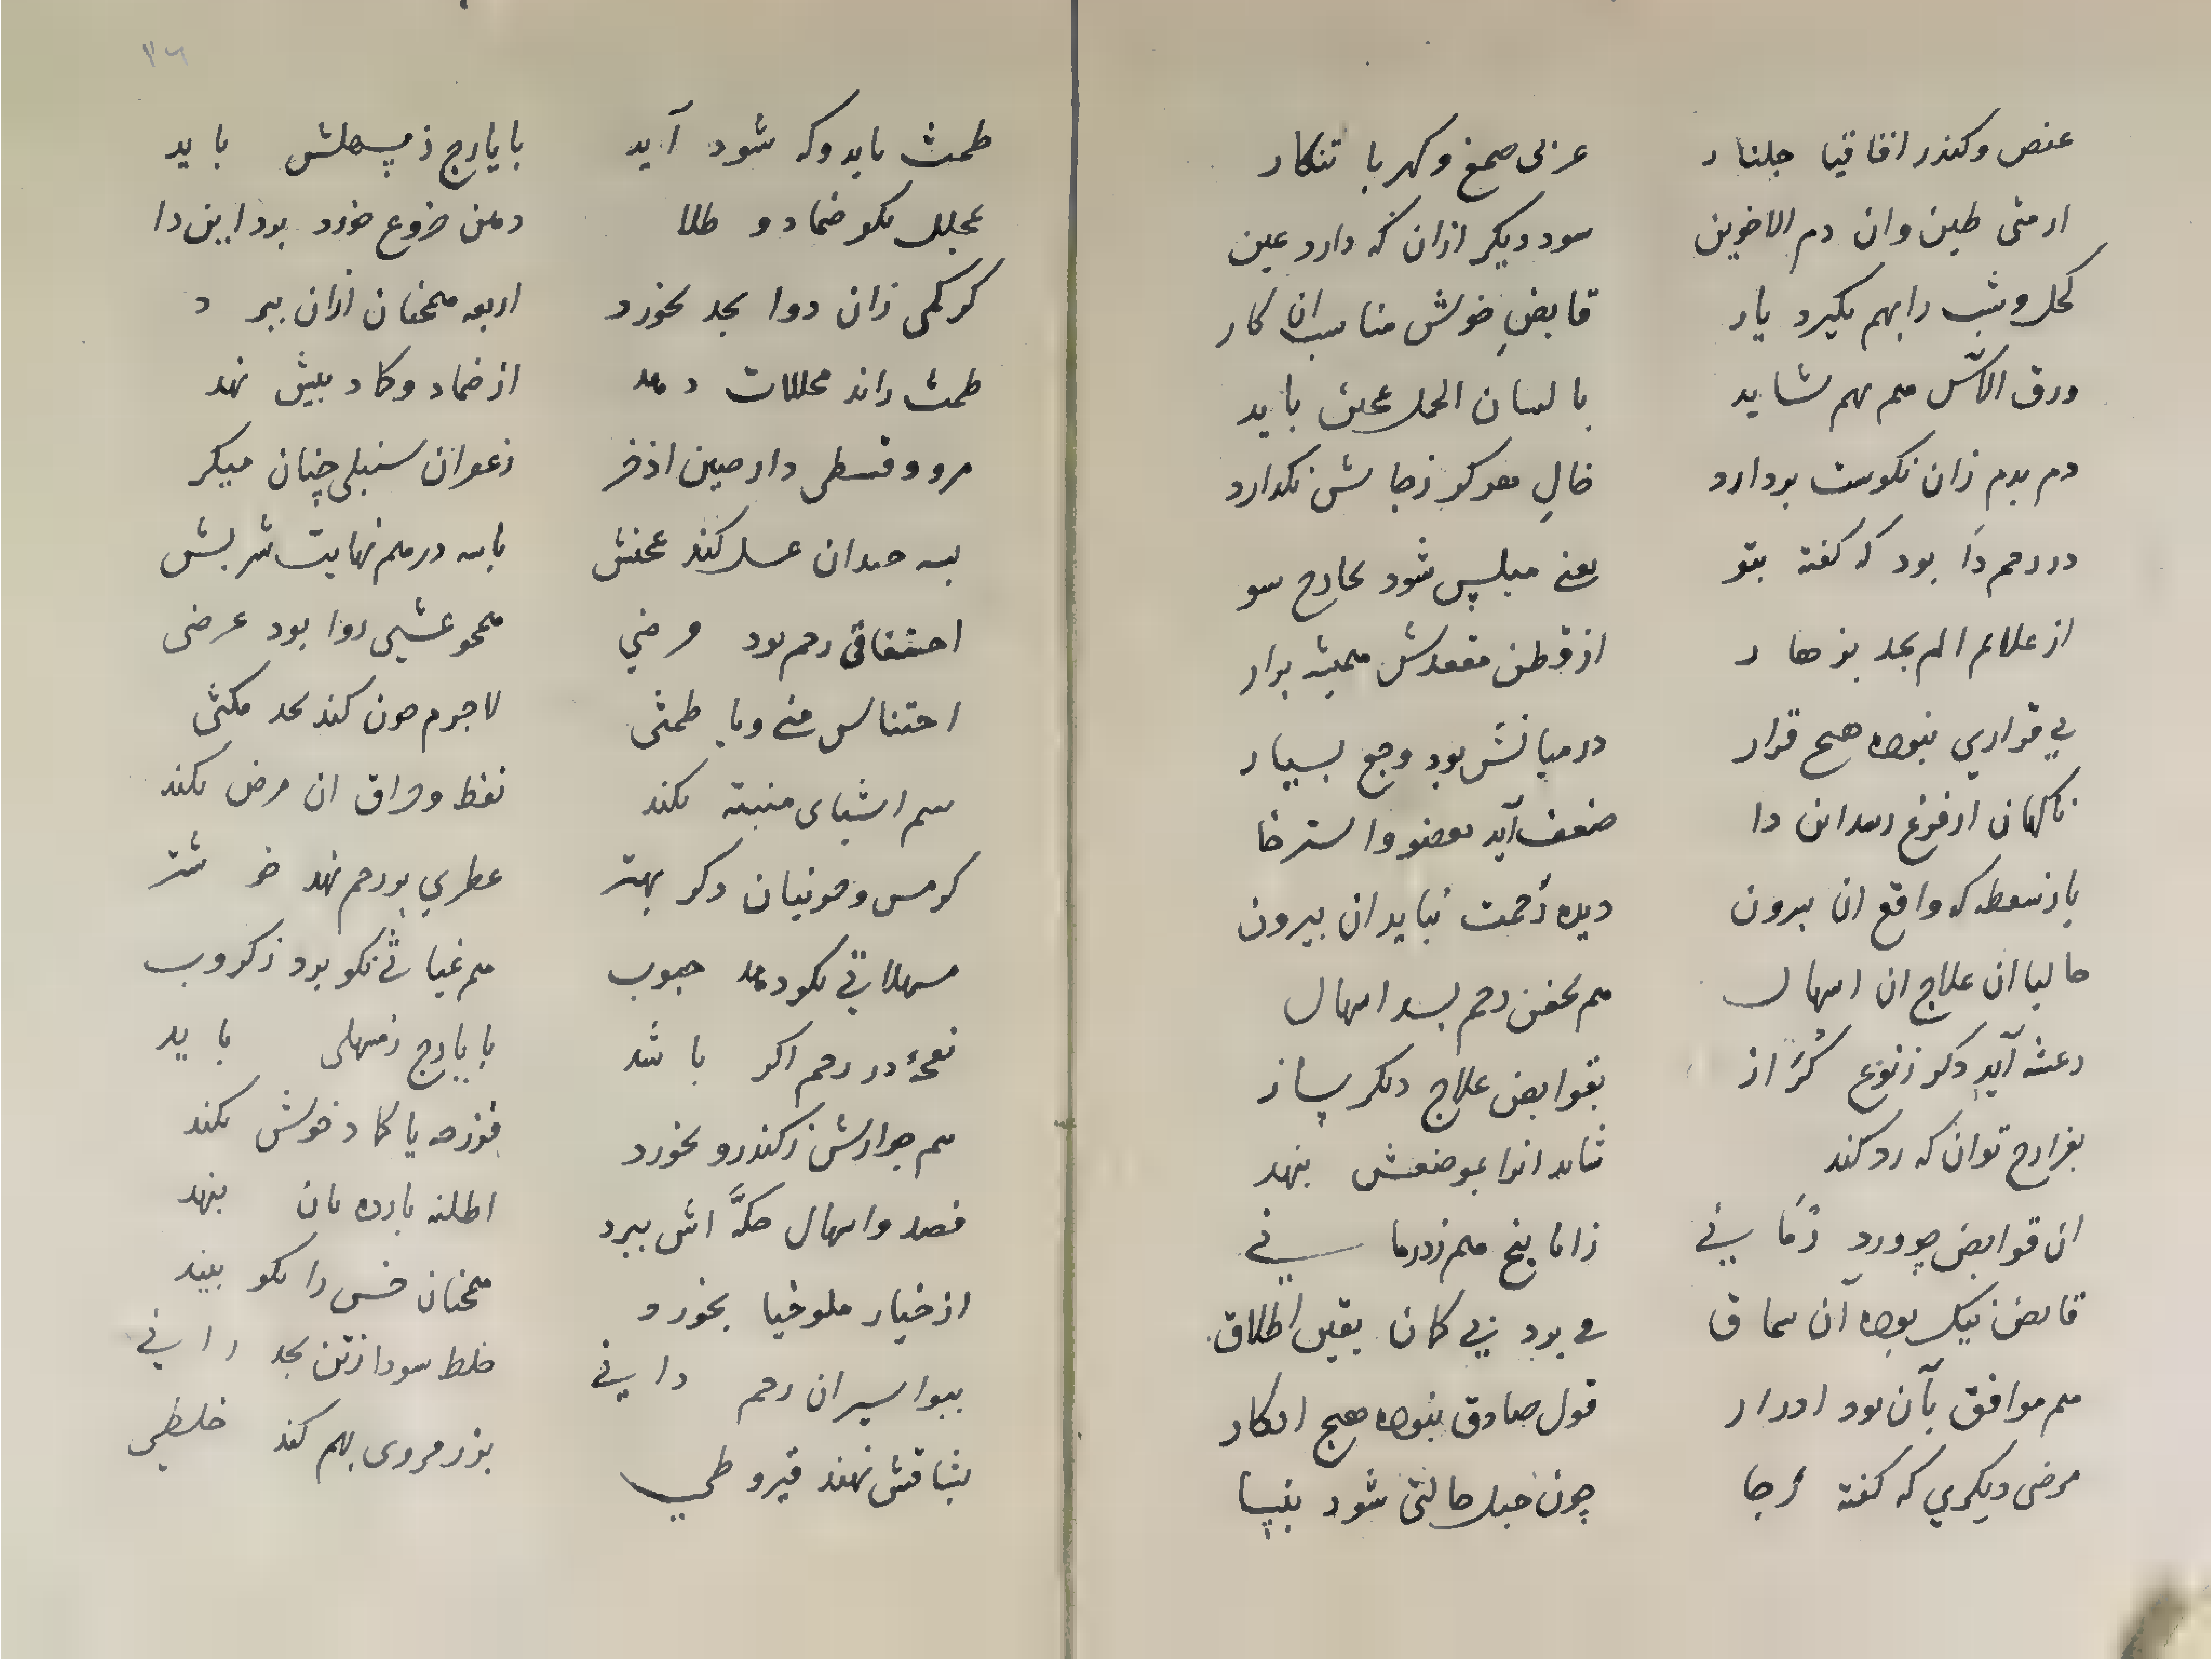 عنص وکندر اقاقیا جلنار    عربی صمغ وکهربا تنکار
ارمنی طین وان دم الاخوین    سود دیکر ازان که دارد عین
کحل وشب را بهم بکیرد یار    قابض خوش مناسب ان کار
ورق الآس هم بهم شاید    با لسان الحمل عجین باید
دم بدم زان نکوست بردارد    خال نکذارد
در رحم دا بود که کفته بتو    یعنی شود بخارج سو
از علایم الم بحد بزهار    از قطن مقعدش همیشه بزار
بی قراری نبوده هیچ قرار    در میانش بود وجع بسیار
ناکهان از فزع رسد این دا    ضعف آید بعضو واسترخا
باز سقطه که واقع ان بیرون    دیده زحمت نباید ان بیرون
حالیا ان علاج ان اسهال    هم بحقن رحم بسد اسهال
رعشه آید دکر زنوع کزاز    بقوابض علاج دیکر ساز
بخرارج توان که رد کند    شاید انرا بموضعش بنهد
ان قوابض چو ورد زمانی    زانا بنج هم ز درمانی
قابض نیک بوده آن سماق    می بود بی کمان یقین اطلاق
هم موافق بآن بود ادرار    قول صادق نبوده هیچ انکار
مرض دیکری که کفته رجا    چون حبل حالتی شود بنسا
۳۶
طمث باید وکه شود آید    با یارج ز مسهلش باید
بحلل نکو ضماد و طلا    دهن خروع خورد برد این دا
کر کمی زان دوا بحد بخورد    اربعه همچنان ازان ببرد
طمث راند محللات دهد    از ضماد وکماد بیش نهد
مر وقسطی دارصین اذفر    زعفران سنبلی چنان میکر
بسه چندان عسل کند عجنش    با سه درهم نهایت شربش
اختناقی رحم بود مرضی    همچو غشیی روا بود عرضی
احتناس منی ویا طمثی    لاجرم چون کند بحد مکثی
شم اشیای منتنه بکند    نفط وحراق ان مرض بکند
دکر بهتر    عطری بر رحم نهد خوشتر
مسهلاتی نکو دهد حبوب    هم غیاثی نکو بود ز کروب
نفخهٔ در رحم اکر باشد    با یارج ز مسهلی باید
هم جوارش ز کندرو بخورد    فرزجه یا کماد خوش بکند
فصد واسهال حکه اش ببرد    اطلیه بارده بان بنهد
از خیار ملوخیا بخورد    همچنان خس را نکو بیند
ببواسیر ان رحم دانی    خلط سودا ز تن بحد رانی
بشقاقش نهند قیروطی    بزر مروی بهم کند خلطی